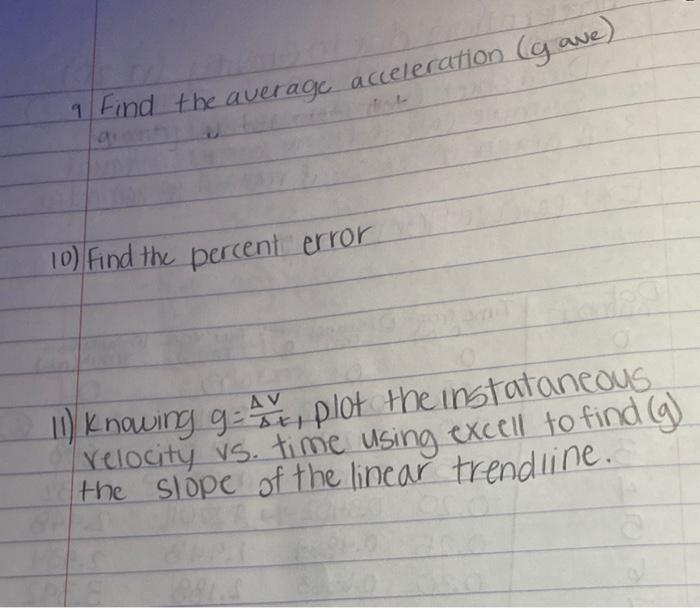 9 Find the average acceleration (g ave)
10) Find the percent error
11) Knowing g = ΔV/Δt, plot the instataneous
velocity vs. time using excell to find (g)
the slope of the linear trendline.